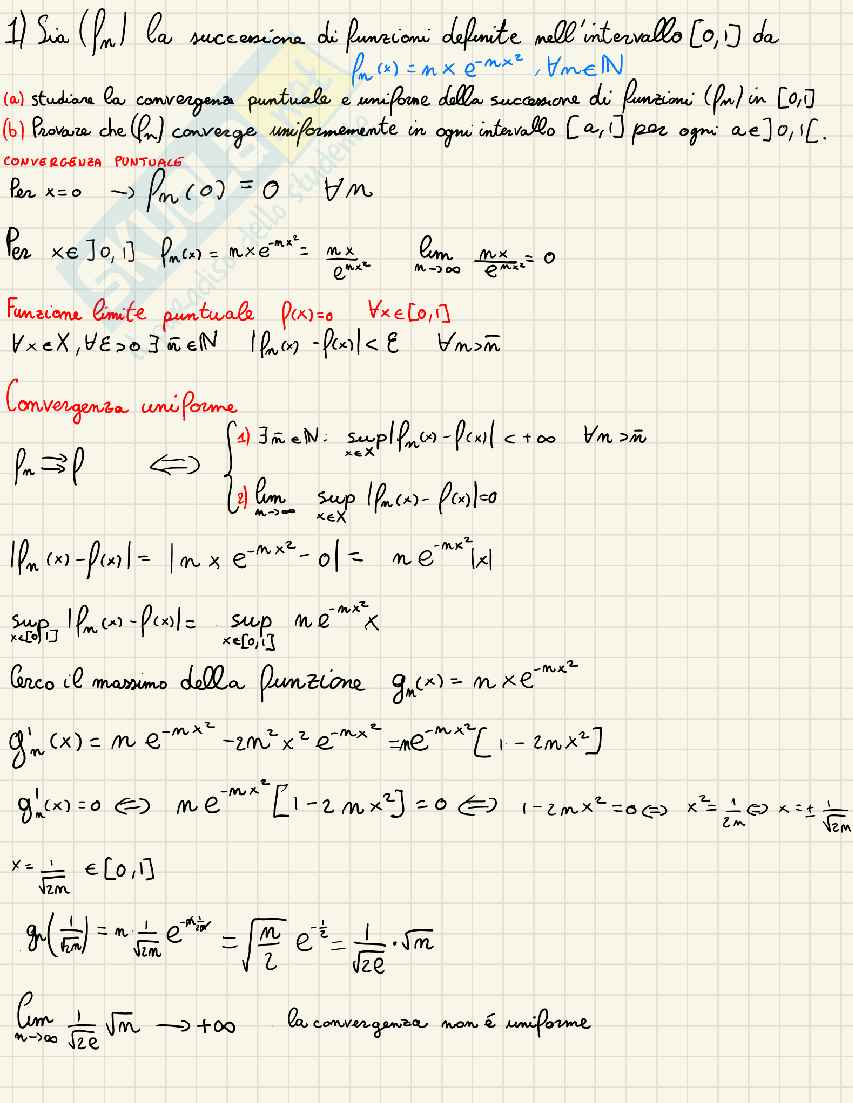 1) Sia (fn) la successione di funzioni definite nell'intervallo [0,1] da
fn(x) = n x e^{-nx²}, ∀n∈ℕ
(a) studiare la convergenza puntuale e uniforme della successione di funzioni (fn) in [0,1]
(b) Provare che (fn) converge uniformemente in ogni intervallo [a,1] per ogni a∈]0,1[.
CONVERGENZA PUNTUALE
Per x=0 → fn(0) = 0 ∀n
Per x∈]0,1] fn(x) = nxe^{-nx²} = nx/e^{nx²} lim_{n→∞} nx/e^{nx²} = 0
Funzione limite puntuale f(x)=0 ∀x∈[0,1]
∀x∈X, ∀ε>0 ∃ n̄∈ℕ |fn(x) - f(x)| < ε ∀n>n̄
Convergenza uniforme
1) ∃ n̄∈ℕ: sup_{x∈X} |fn(x) - f(x)| < +∞ ∀n>n̄
fn ⇉ f ⟺
2) lim_{n→∞} sup_{x∈X} |fn(x) - f(x)| = 0
|fn(x) - f(x)| = |n x e^{-nx²} - 0| = n e^{-nx²} |x|
sup_{x∈[0,1]} |fn(x) - f(x)| = sup_{x∈[0,1]} n e^{-nx²} x
Cerco il massimo della funzione gn(x) = n x e^{-nx²}
g'n(x) = n e^{-nx²} - 2n² x² e^{-nx²} = ne^{-nx²} [1 - 2nx²]
g'n(x) = 0 ⟺ n e^{-nx²} [1 - 2nx²] = 0 ⟺ 1 - 2nx² = 0 ⟺ x² = 1/2n ⟺ x = ± 1/√2n
x = 1/√2n ∈ [0,1]
gn(1/√2n) = n · 1/√2n e^{-n 1/2n} = √(n/2) e^{-1/2} = 1/√2e · √n
lim_{n→∞} 1/√2e √n → +∞ la convergenza non é uniforme